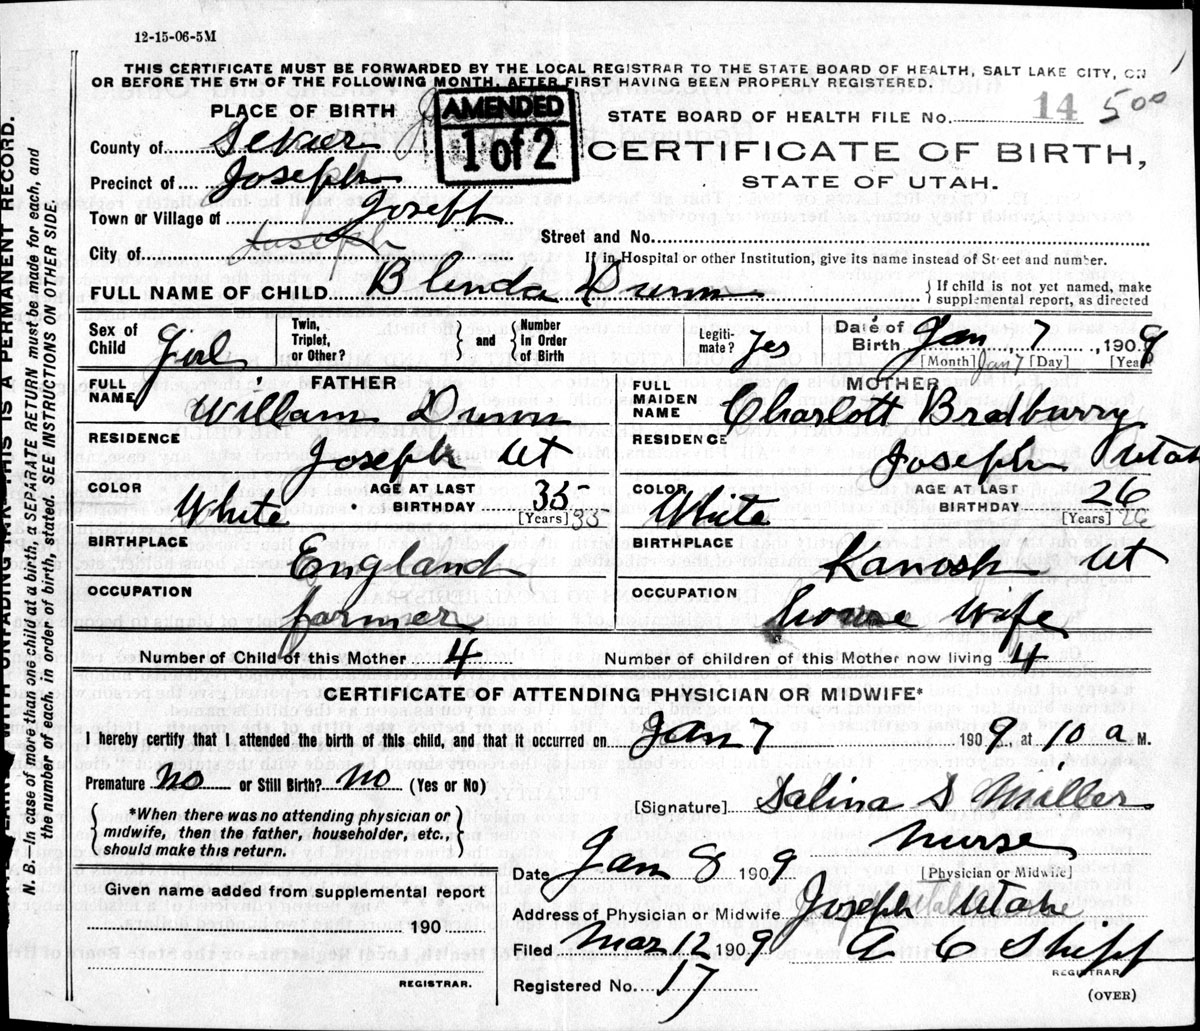 12-15-06-5M
THIS CERTIFICATE MUST BE FORWARDED BY THE LOCAL REGISTRAR TO THE STATE BOARD OF HEALTH, SALT LAKE CITY, ON
OR BEFORE THE 5TH OF THE FOLLOWING MONTH, AFTER FIRST HAVING BEEN PROPERLY REGISTERED.
PLACE OF BIRTH
AMENDED
1 of 2
STATE BOARD OF HEALTH FILE No. 14 500
County of Sevier
CERTIFICATE OF BIRTH,
Precinct of Joseph
STATE OF UTAH.
Town or Village of Joseph
Street and No.
City of Joseph
If in Hospital or other Institution, give its name instead of Street and number.
FULL NAME OF CHILD Blenda Dunn
If child is not yet named, make supplemental report, as directed
Sex of Child Girl
Twin, Triplet, or Other? and Number in Order of Birth
Legiti-mate? yes
Date of Birth Jan 7, 1909
[Month] Jan 7 [Day] [Year]
FATHER
MOTHER
FULL NAME William Dunn
FULL MAIDEN NAME Charlott Bradburry
RESIDENCE Joseph Ut
RESIDENCE Joseph Utah
COLOR White AGE AT LAST BIRTHDAY 35 [Years] 35
COLOR White AGE AT LAST BIRTHDAY 26 [Years] 26
BIRTHPLACE England
BIRTHPLACE Kanosh Ut
OCCUPATION farmer
OCCUPATION house Wife
Number of Child of this Mother 4
Number of children of this Mother now living 4
CERTIFICATE OF ATTENDING PHYSICIAN OR MIDWIFE*
I hereby certify that I attended the birth of this child, and that it occurred on Jan 7 1909, at 10 a M.
Premature no or Still Birth? no (Yes or No)
[Signature] Salina S Miller
*When there was no attending physician or
midwife, then the father, householder, etc.,
should make this return.
nurse
Date Jan 8 1909 [Physician or Midwife]
Given name added from supplemental report
190
Address of Physician or Midwife Joseph Utah
Filed Mar 12 1909 E C Shipp
REGISTRAR.
REGISTRAR
Registered No. 17
(OVER)
WITH UNFADING INK—THIS IS A PERMANENT RECORD.
N. B.—In case of more than one child at a birth, a SEPARATE RETURN must be made for each, and
the number of each, in order of birth, stated. SEE INSTRUCTIONS ON OTHER SIDE.